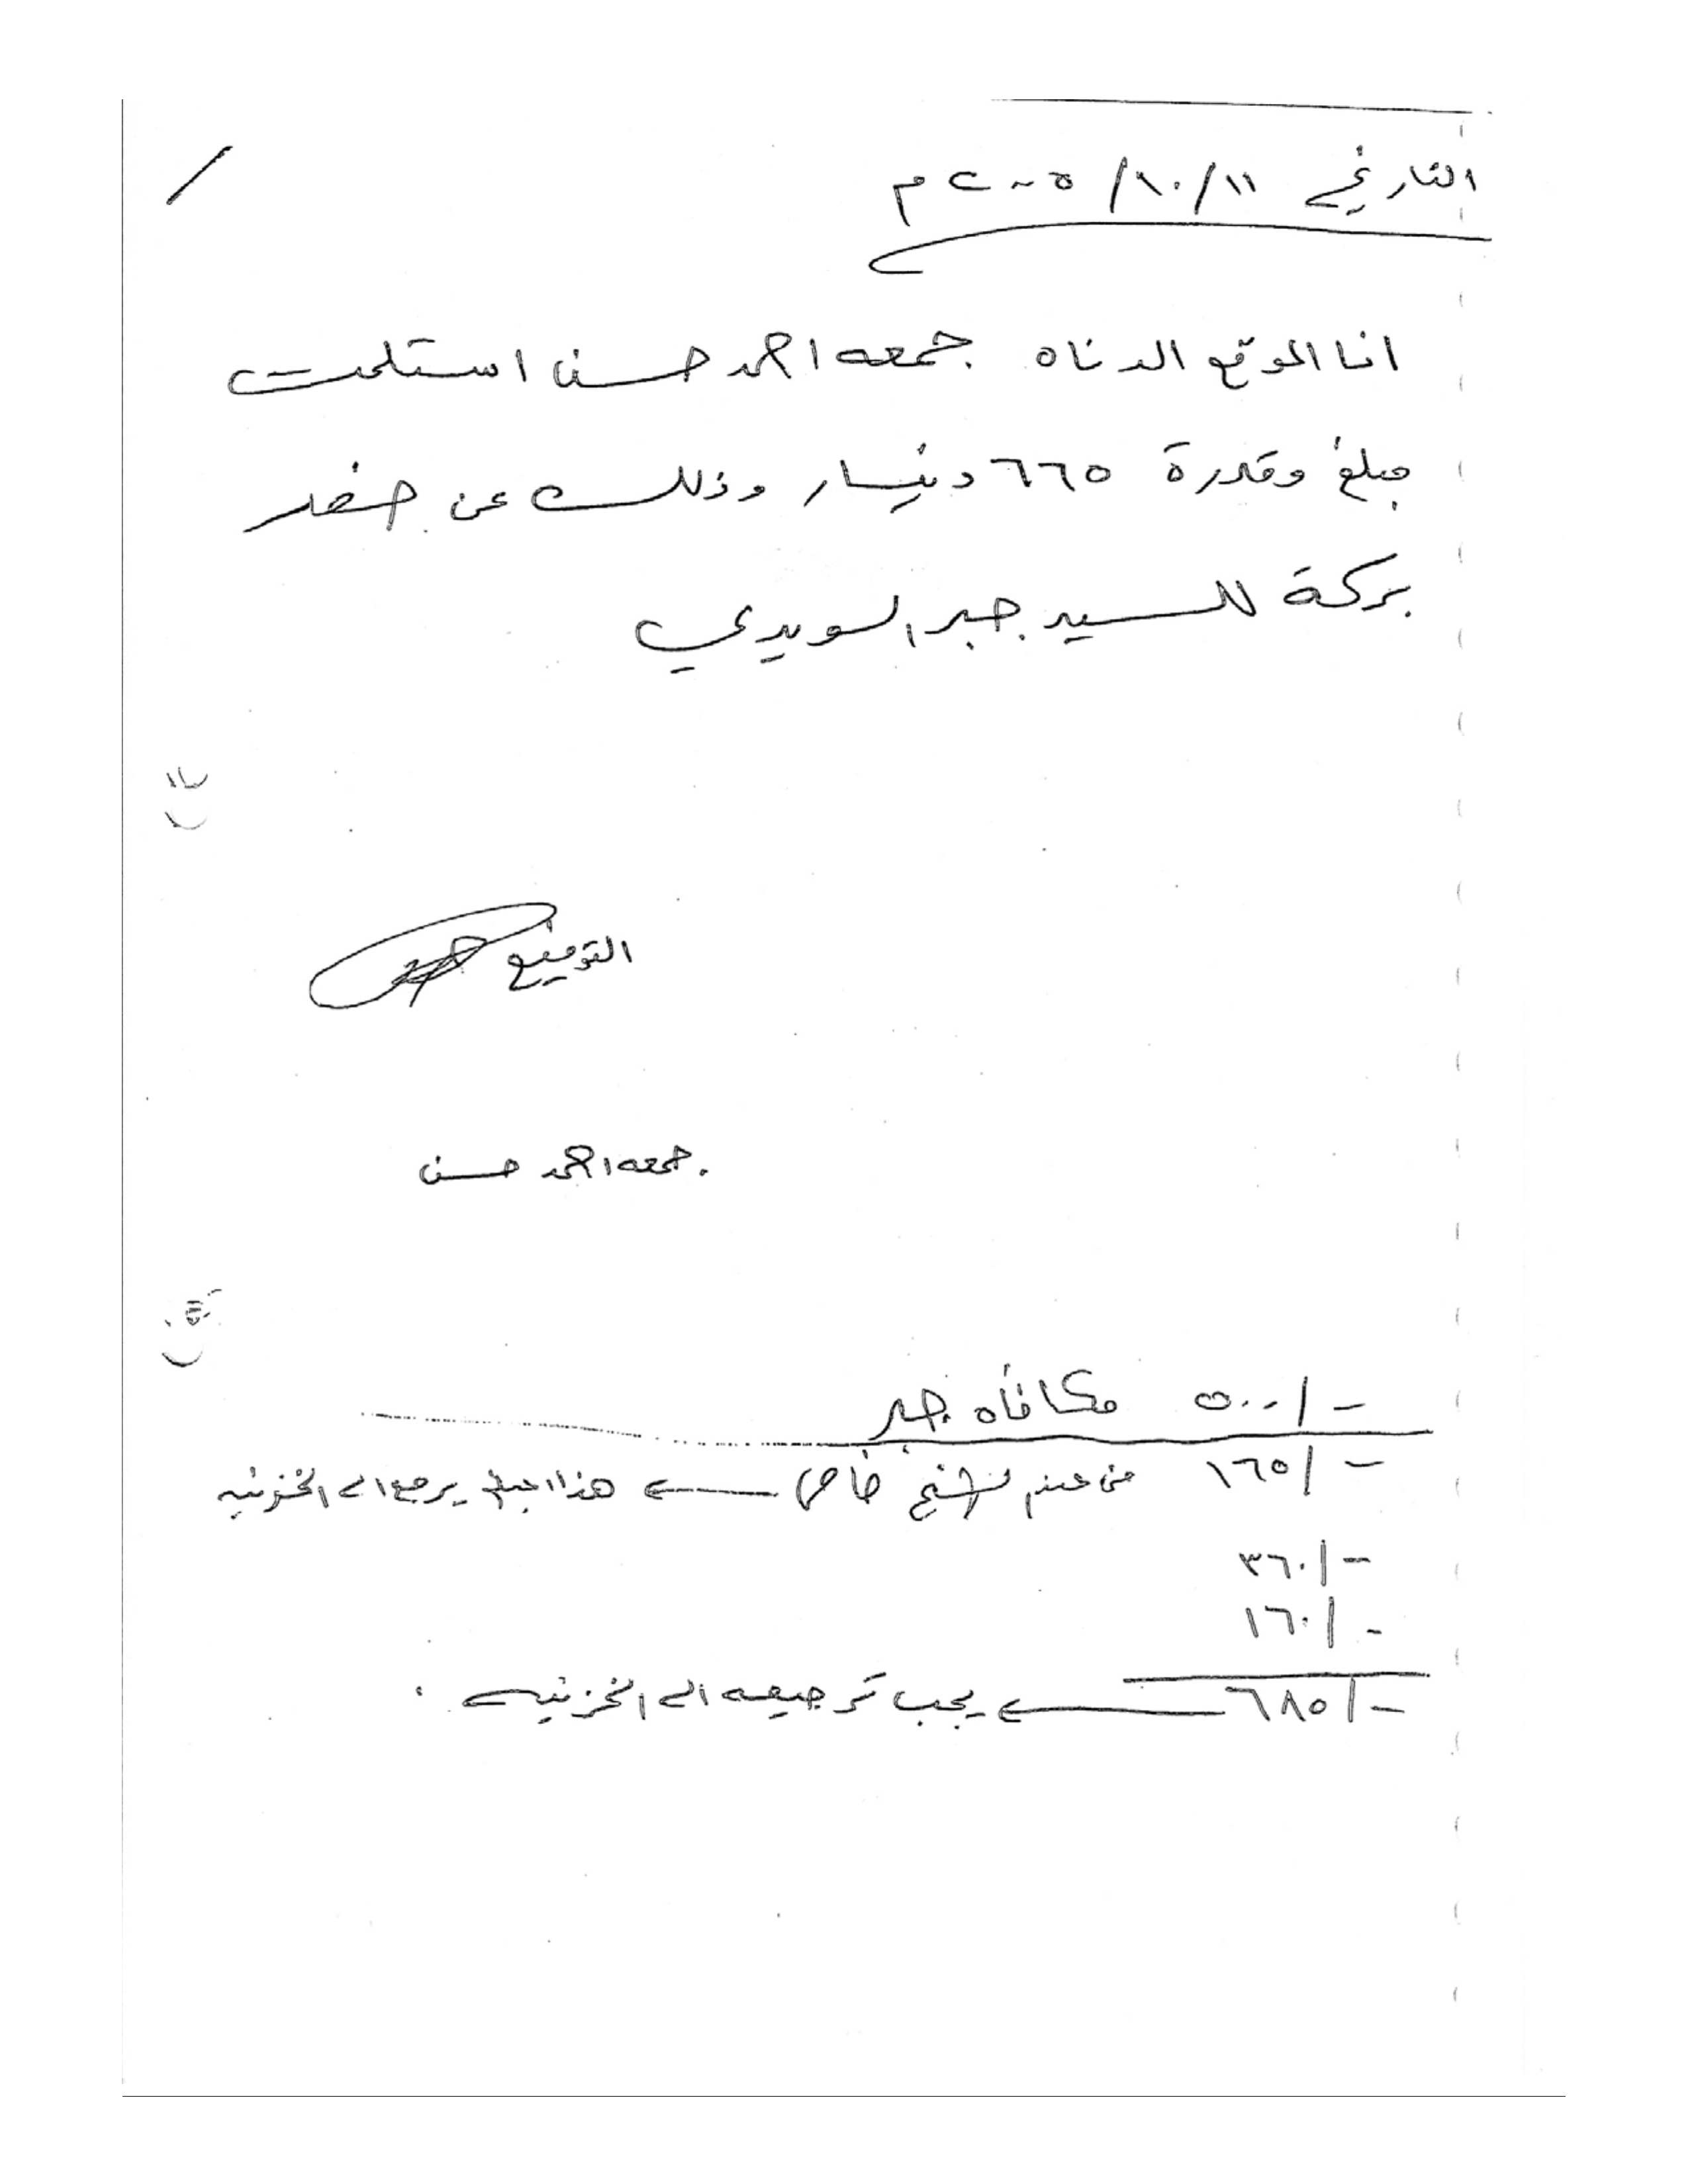 التاريخ ١١/١٠/٢٠٠٥ م
انا الموقع الدناه جمعه احمد حسن استلمت
مبلغ وقدرة ٦٦٥ دينار وذلك عن حفر
بركة للسيد جبر السويدي
التوقيع
جمعه احمد حسن
٥٠٠/- مكافأه جبر
١٦٥/- من خاص ← هذا المبلغ يرجع الى الخزينه
٣٦٠/-
١٦٠/-
٦٨٥/- ← يجب ترجيعه الى الخزينه